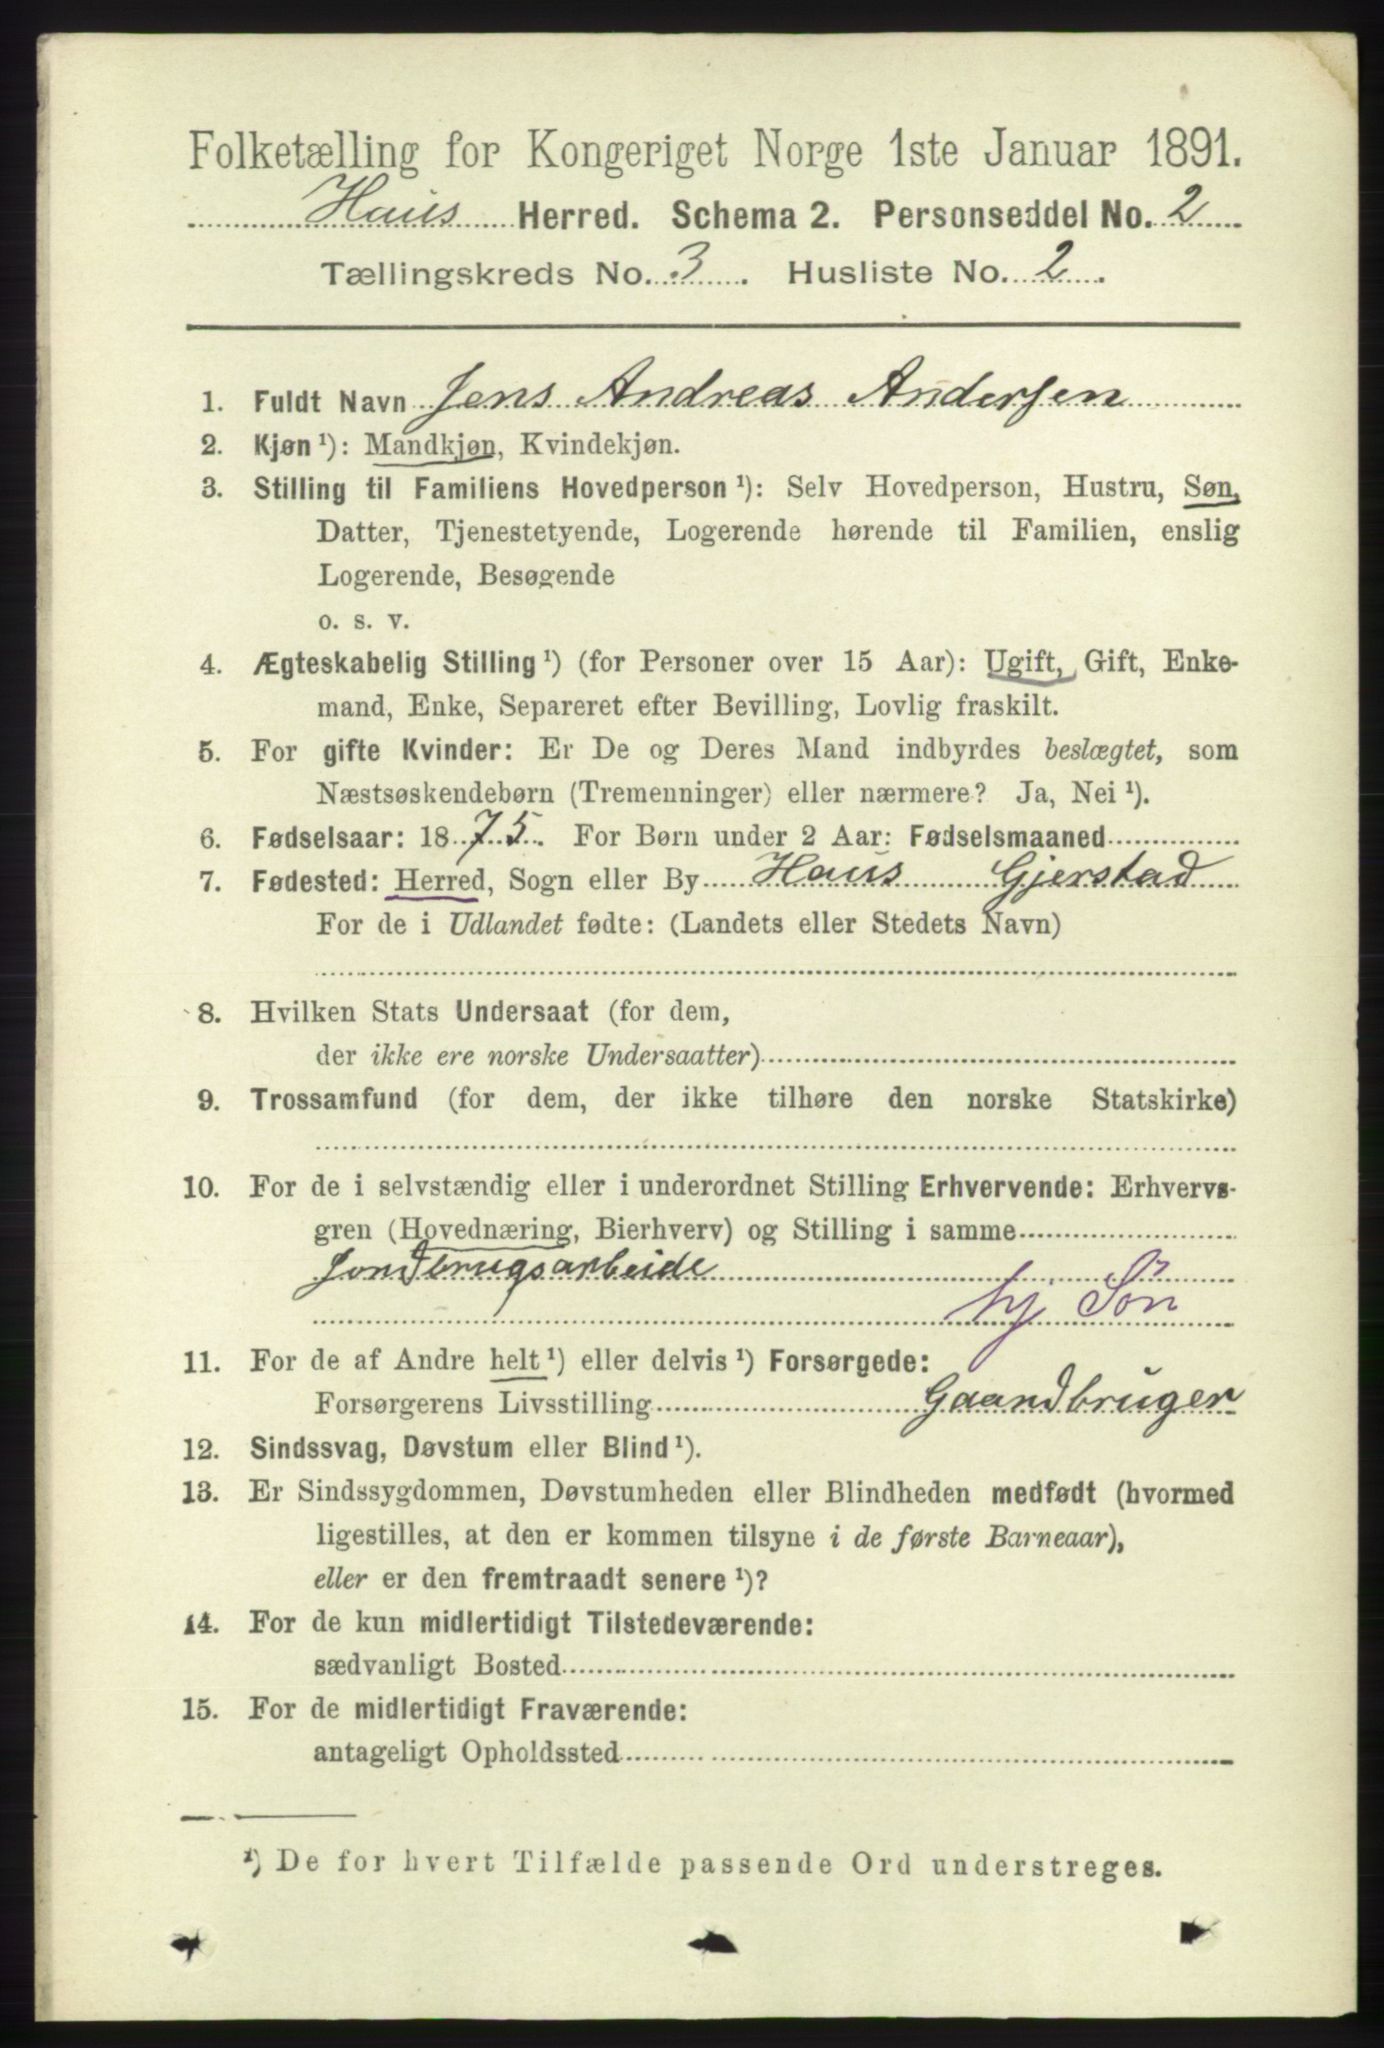 Folketælling for Kongeriget Norge 1ste Januar 1891.
Haus Herred. Schema 2. Personseddel No. 2
Tællingskreds No. 3. Husliste No. 2.
1. Fuldt Navn Jens Andreas Andersen
2. Kjøn ¹): Mandkjøn, Kvindekjøn.
3. Stilling til Familiens Hovedperson ¹): Selv Hovedperson, Hustru, Søn,
Datter, Tjenestetyende, Logerende hørende til Familien, enslig
Logerende, Besøgende
o. s. v.
4. Ægteskabelig Stilling ¹) (for Personer over 15 Aar): Ugift, Gift, Enke-
mand, Enke, Separeret efter Bevilling, Lovlig fraskilt.
5. For gifte Kvinder: Er De og Deres Mand indbyrdes beslægtet, som
Næstsøskendebørn (Tremenninger) eller nærmere? Ja, Nei ¹).
6. Fødselsaar: 1875. For Børn under 2 Aar: Fødselsmaaned
7. Fødested: Herred, Sogn eller By Haus Gjerstad
For de i Udlandet fødte: (Landets eller Stedets Navn)
8. Hvilken Stats Undersaat (for dem,
der ikke ere norske Undersaatter)
9. Trossamfund (for dem, der ikke tilhøre den norske Statskirke)
10. For de i selvstændig eller i underordnet Stilling Erhvervende: Erhvervs-
gren (Hovednæring, Bierhverv) og Stilling i samme
Jordbrugsarbeide
hj Søn
11. For de af Andre helt ¹) eller delvis ¹) Forsørgede:
Forsørgerens Livsstilling Gaardbruger
12. Sindssvag, Døvstum eller Blind ¹).
13. Er Sindssygdommen, Døvstumheden eller Blindheden medfødt (hvormed
ligestilles, at den er kommen tilsyne i de første Barneaar),
eller er den fremtraadt senere ¹)?
14. For de kun midlertidigt Tilstedeværende:
sædvanligt Bosted
15. For de midlertidigt Fraværende:
antageligt Opholdssted
¹) De for hvert Tilfælde passende Ord understreges.